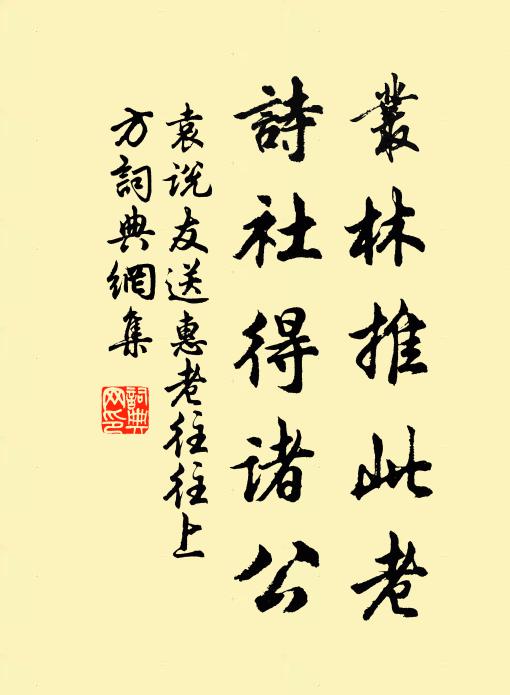 叢林推此老
詩社得諸公
袁说友送惠老往往上
方詞典網集
詞典
网印